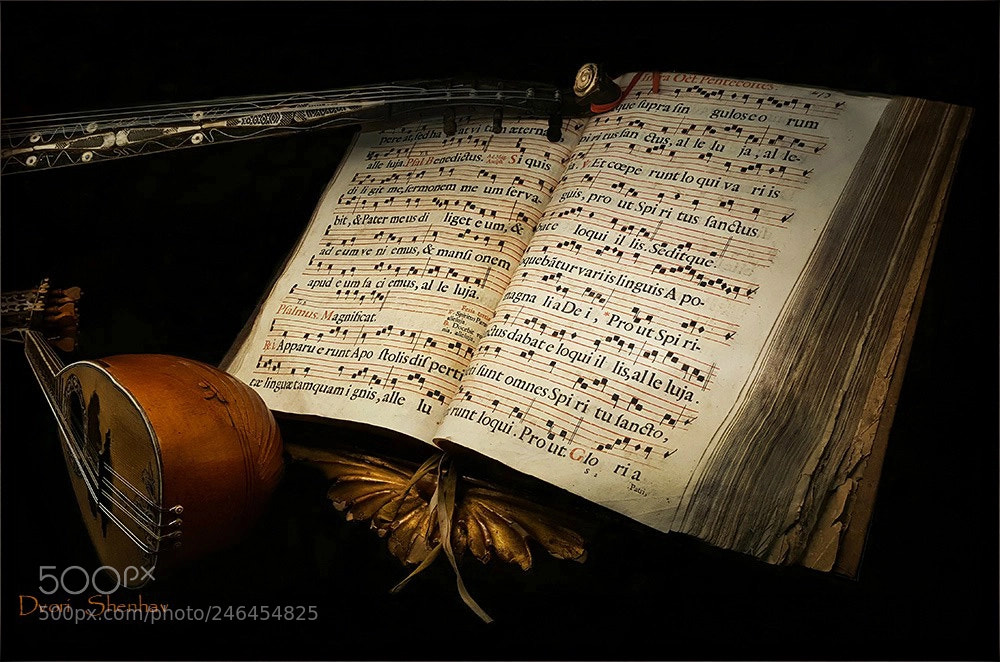 pere at, sed ha
alle luja. Psal. Benedictus. Si quis
di li git me, sermonem me um serva-
bit, & Pater meus di liget e um, &
ad e um ve ni emus, & mansi onem
apud e um fa ci emus, al le luja.
Psalmus. Magnificat.
Apparu e runt Apo stolis dis perti
tæ linguæ tamquam i gnis, alle lu
infra Oct. Pentecostes
que supra sin gulos e o rum
ri tus san ctus, al le lu ja, al le-
Et cœpe runt lo qui va ri is
guis, pro ut Spi ri tus sanctus
loqui il lis. Seditque.
quebātur variis linguis A po-
magna li a De i, Pro ut Spi ri-
ctus dabat e loqui il lis, al le luja.
sunt omnes Spi ri tu sancto,
runt loqui. Pro ut. Glo ri a
Patri,
500px
Dvori Shenhav
500px.com/photo/246454825